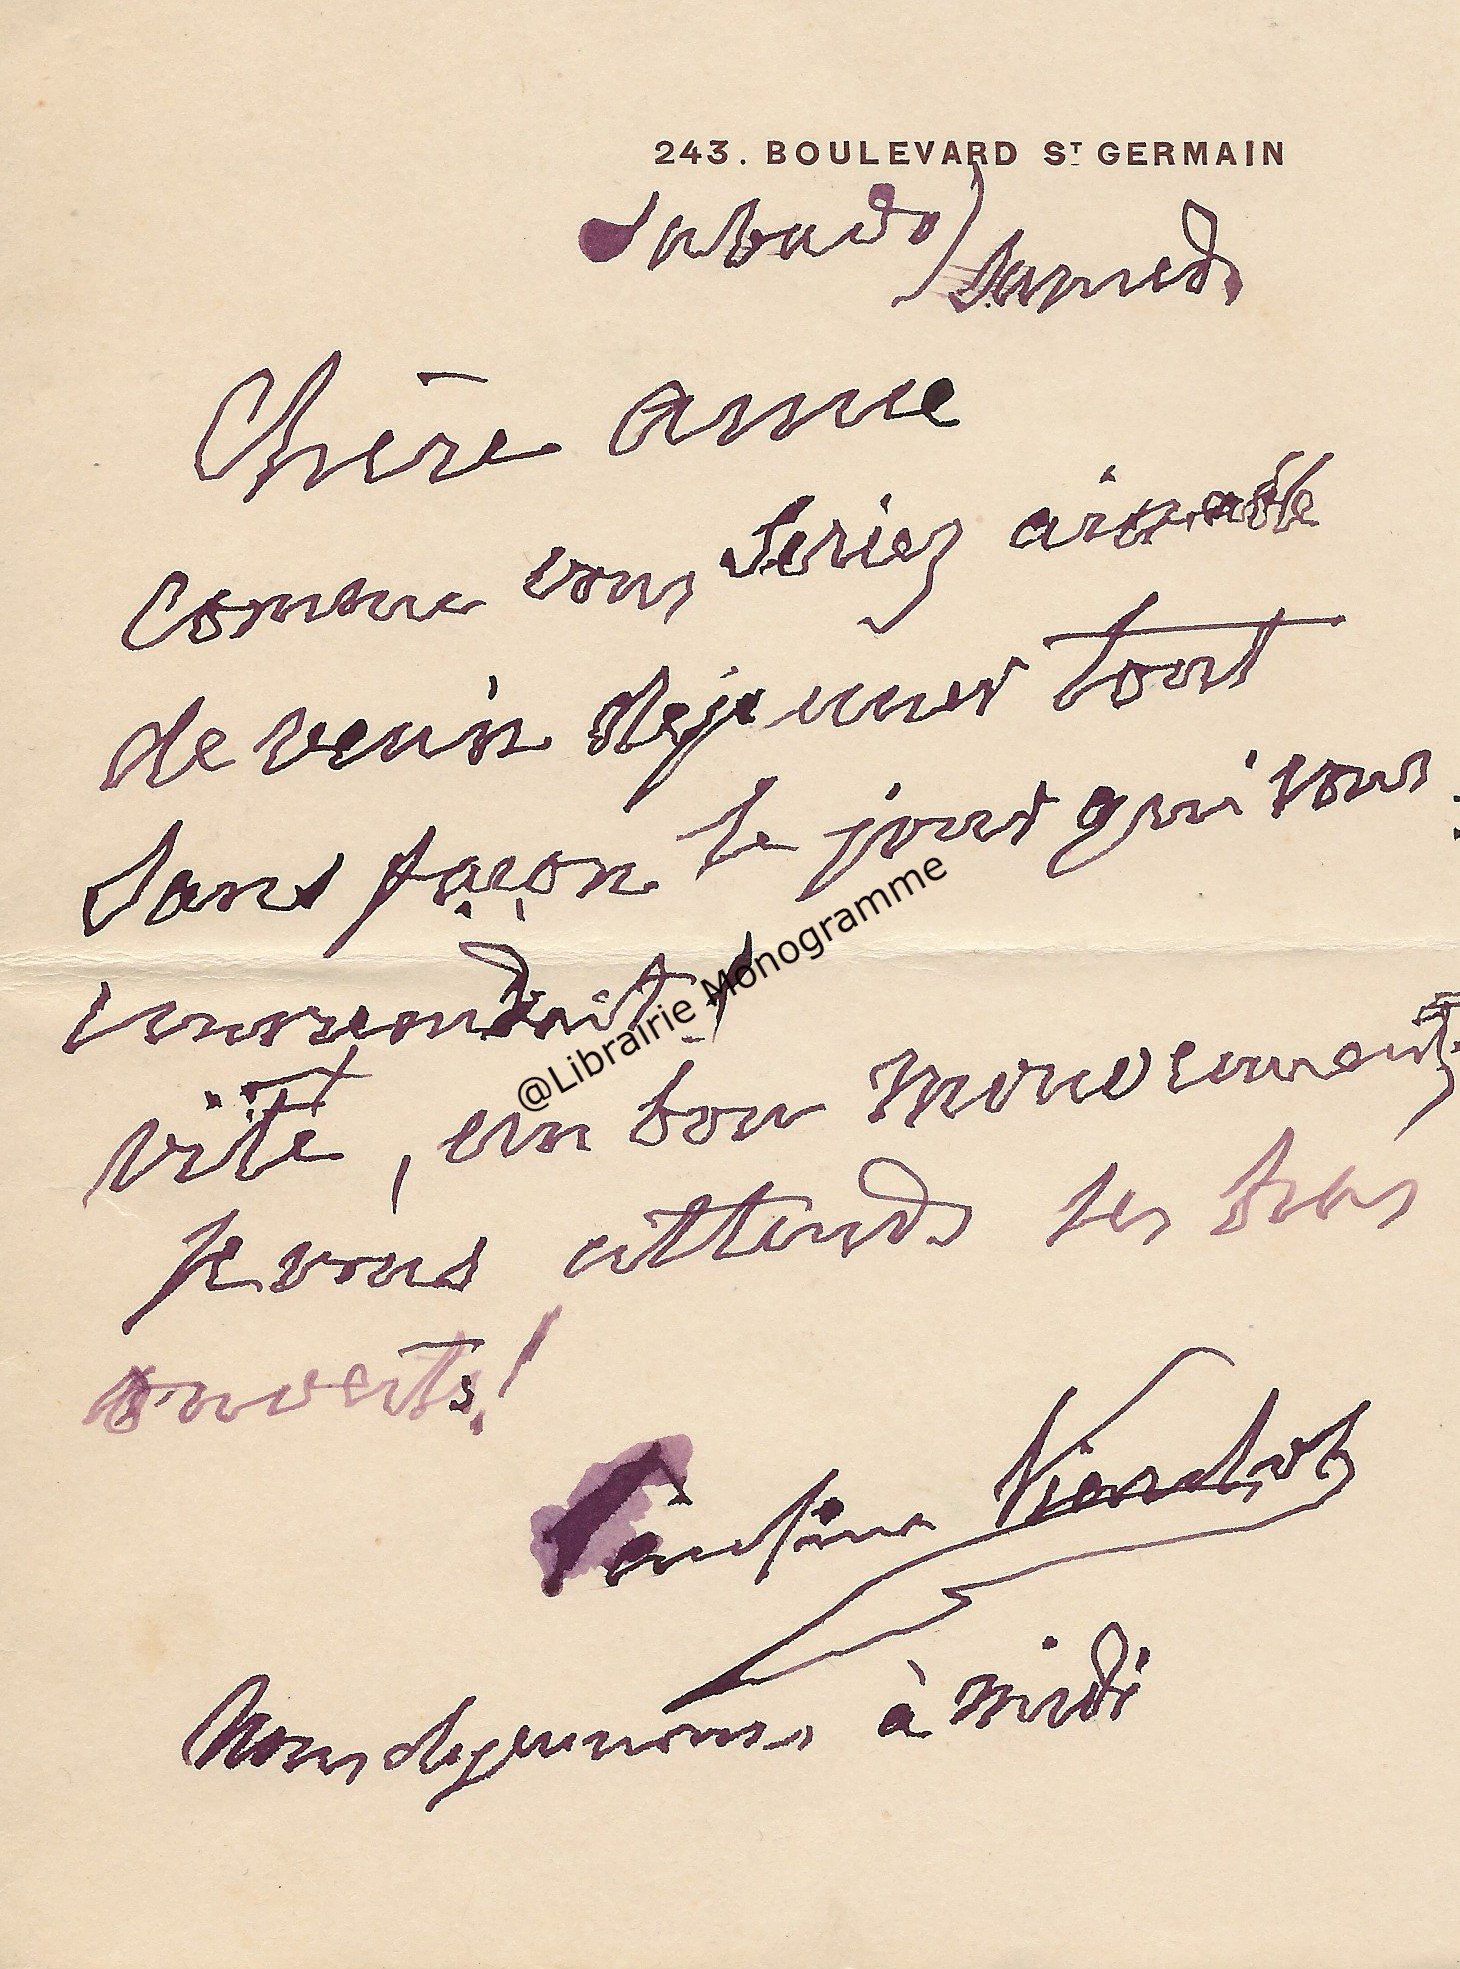 243. BOULEVARD ST GERMAIN
Sabado) Samedi
Chère amie
comme vous seriez aimable
de venir dejeuner tout
sans façon le jour qui vous
conviendrait!
@Librairie Monogramme
vite, un bon mouvement
je vous attends les bras
ouverts!
Pauline Viardot
Nous dejeunons à midi